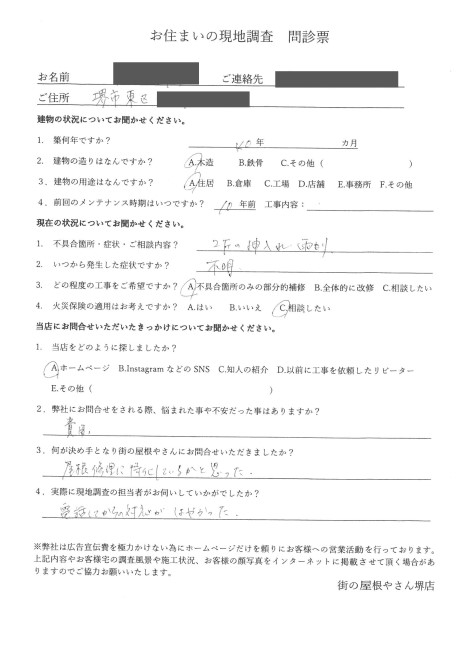 お住まいの現地調査　問診票
お名前　ご連絡先
ご住所　堺市東区
建物の状況についてお聞かせください。
1.　築何年ですか？　40年　カ月
2.　建物の造りはなんですか？　A.木造　B.鉄骨　C.その他（　）
3．建物の用途はなんですか？　A.住居　B.倉庫　C.工場　D.店舗　E.事務所　F.その他
4．前回のメンテナンス時期はいつですか？　10年前　工事内容：
現在の状況についてお聞かせください。
1.　不具合箇所・症状・ご相談内容？　2Fの押入れ 雨漏り
2.　いつから発生した症状ですか？　不明
3.　どの程度の工事をご希望ですか？　A.不具合箇所のみの部分的補修　B.全体的に改修　C.相談したい
4.　火災保険の適用はお考えですか？　A.はい　B.いいえ　C.相談したい
当店にお問合せいただいたきっかけについてお聞かせください。
1.　当店をどのように探しましたか？
A.ホームページ　B.Instagram などの SNS　C.知人の紹介　D.以前に工事を依頼したリピーター
E.その他（　）
2．弊社にお問合せをされる際、悩まれた事や不安だった事はありますか？
費用
3．何が決め手となり街の屋根やさんにお問合せいただきましたか？
屋根修理に特化しているかと思った.
4．実際に現地調査の担当者がお伺いしていかがでしたか？
電話してからの対応がはやかった.
※弊社は広告宣伝費を極力かけない為にホームページだけを頼りにお客様への営業活動を行っております。
上記内容やお客様宅の調査風景や施工状況、お客様の顔写真をインターネットに掲載させて頂く場合があ
りますのでご協力お願いいたします。
街の屋根やさん堺店